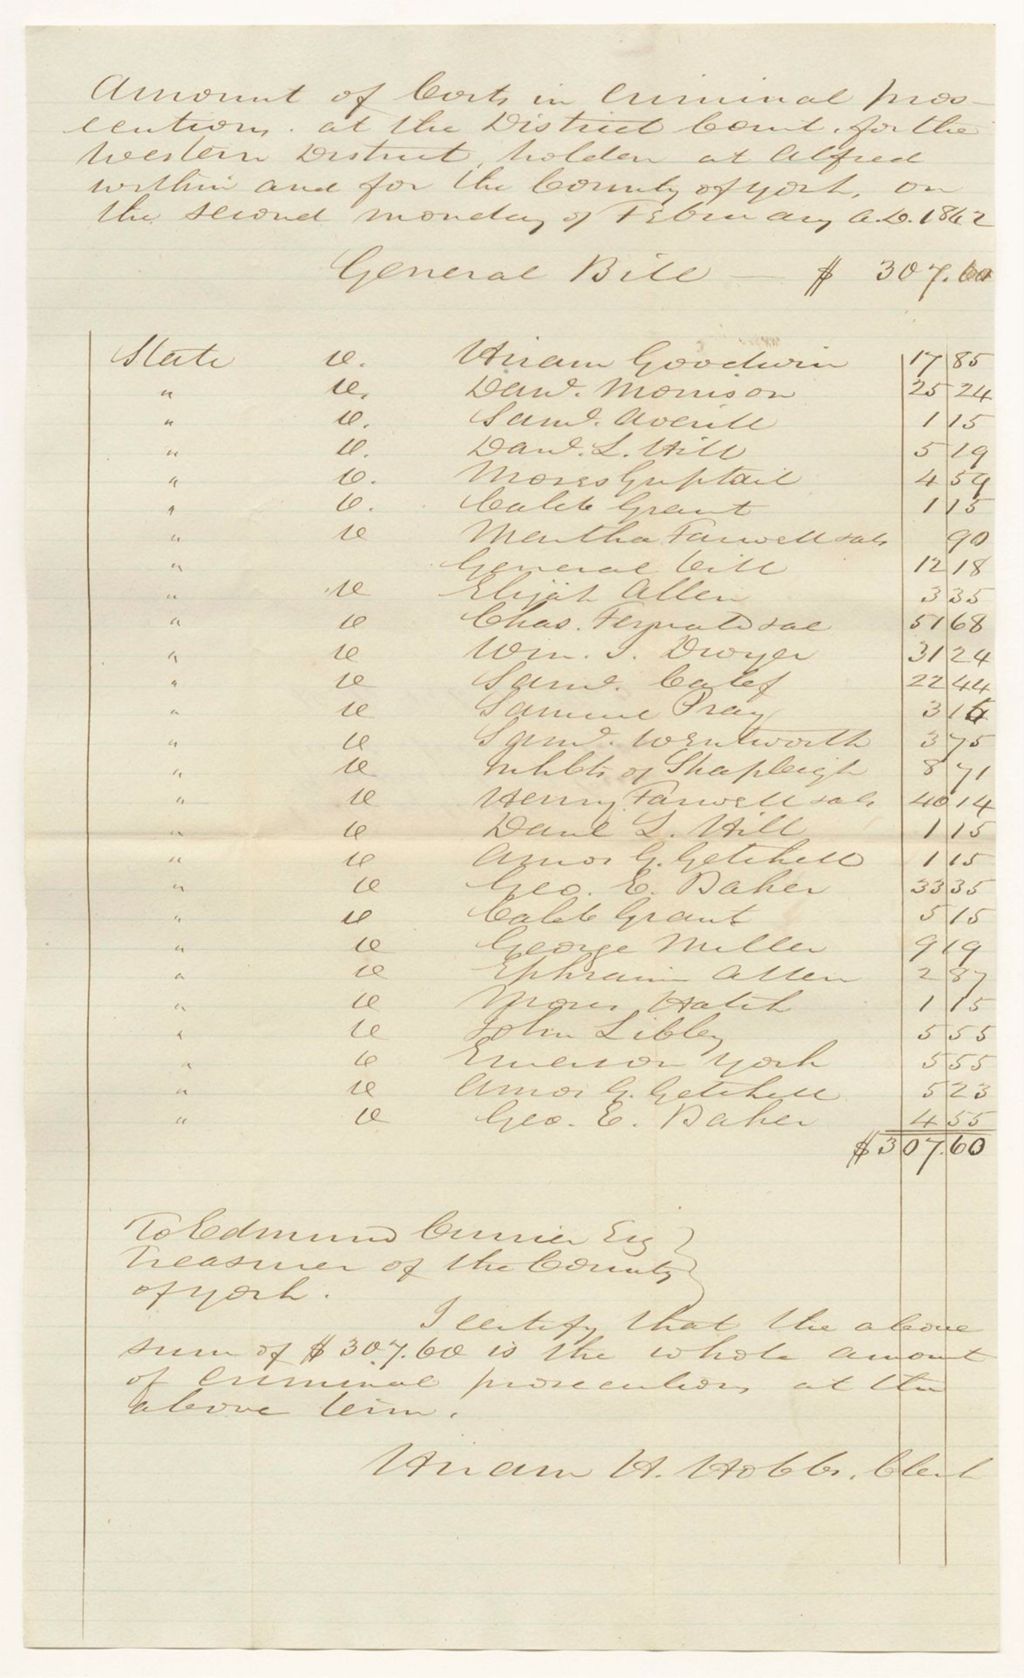 Amount of Costs in Criminal pros-
ecutions. at the District Court, for the
Western District, holden at Alfred
within and for the County of York, on
the second monday of February A.D. 1862
General Bill — $ 307.60
State v. Hiram Goodwin 17 85
" v. Danl. Morrison 25 24
" v. Saml. Averill 1 15
" v. Danl. L. Hill 5 19
" v. Moses Guptail 4 59
" v. Caleb Grant 1 15
" v Martha Farwell & als 90
" General bill 12 18
" v Elijah Allen 3 35
" v Chas. Fernald & al 51 68
" v Wm. I. Dwyer 31 24
" v Saml. Calef 22 44
" v Samuel Pray 3 15
" v Saml. Wentworth 3 75
" v Inhbts of Shapleigh 8 71
" v Henry Farwell & als 40 14
" v Danl L. Hill 1 15
" v Amos G. Getchell 1 15
" v Geo. E. Baker 33 35
" v Caleb Grant 5 15
" v George Miller 9 19
" v Ephraim Allen 2 87
" v Moses Hatch 1 15
" v John Libbey 5 55
" v Emerson York 5 55
" v Amos G. Getchell 5 23
" v Geo. E. Baker 4 55
$307.60
To Edmund Currier Esq
Treasurer of the County
of York.
I certify that the above
sum of $307.60 is the whole amount
of Criminal prosecutions at the
above term.
Hiram H. Hobbs, Clerk